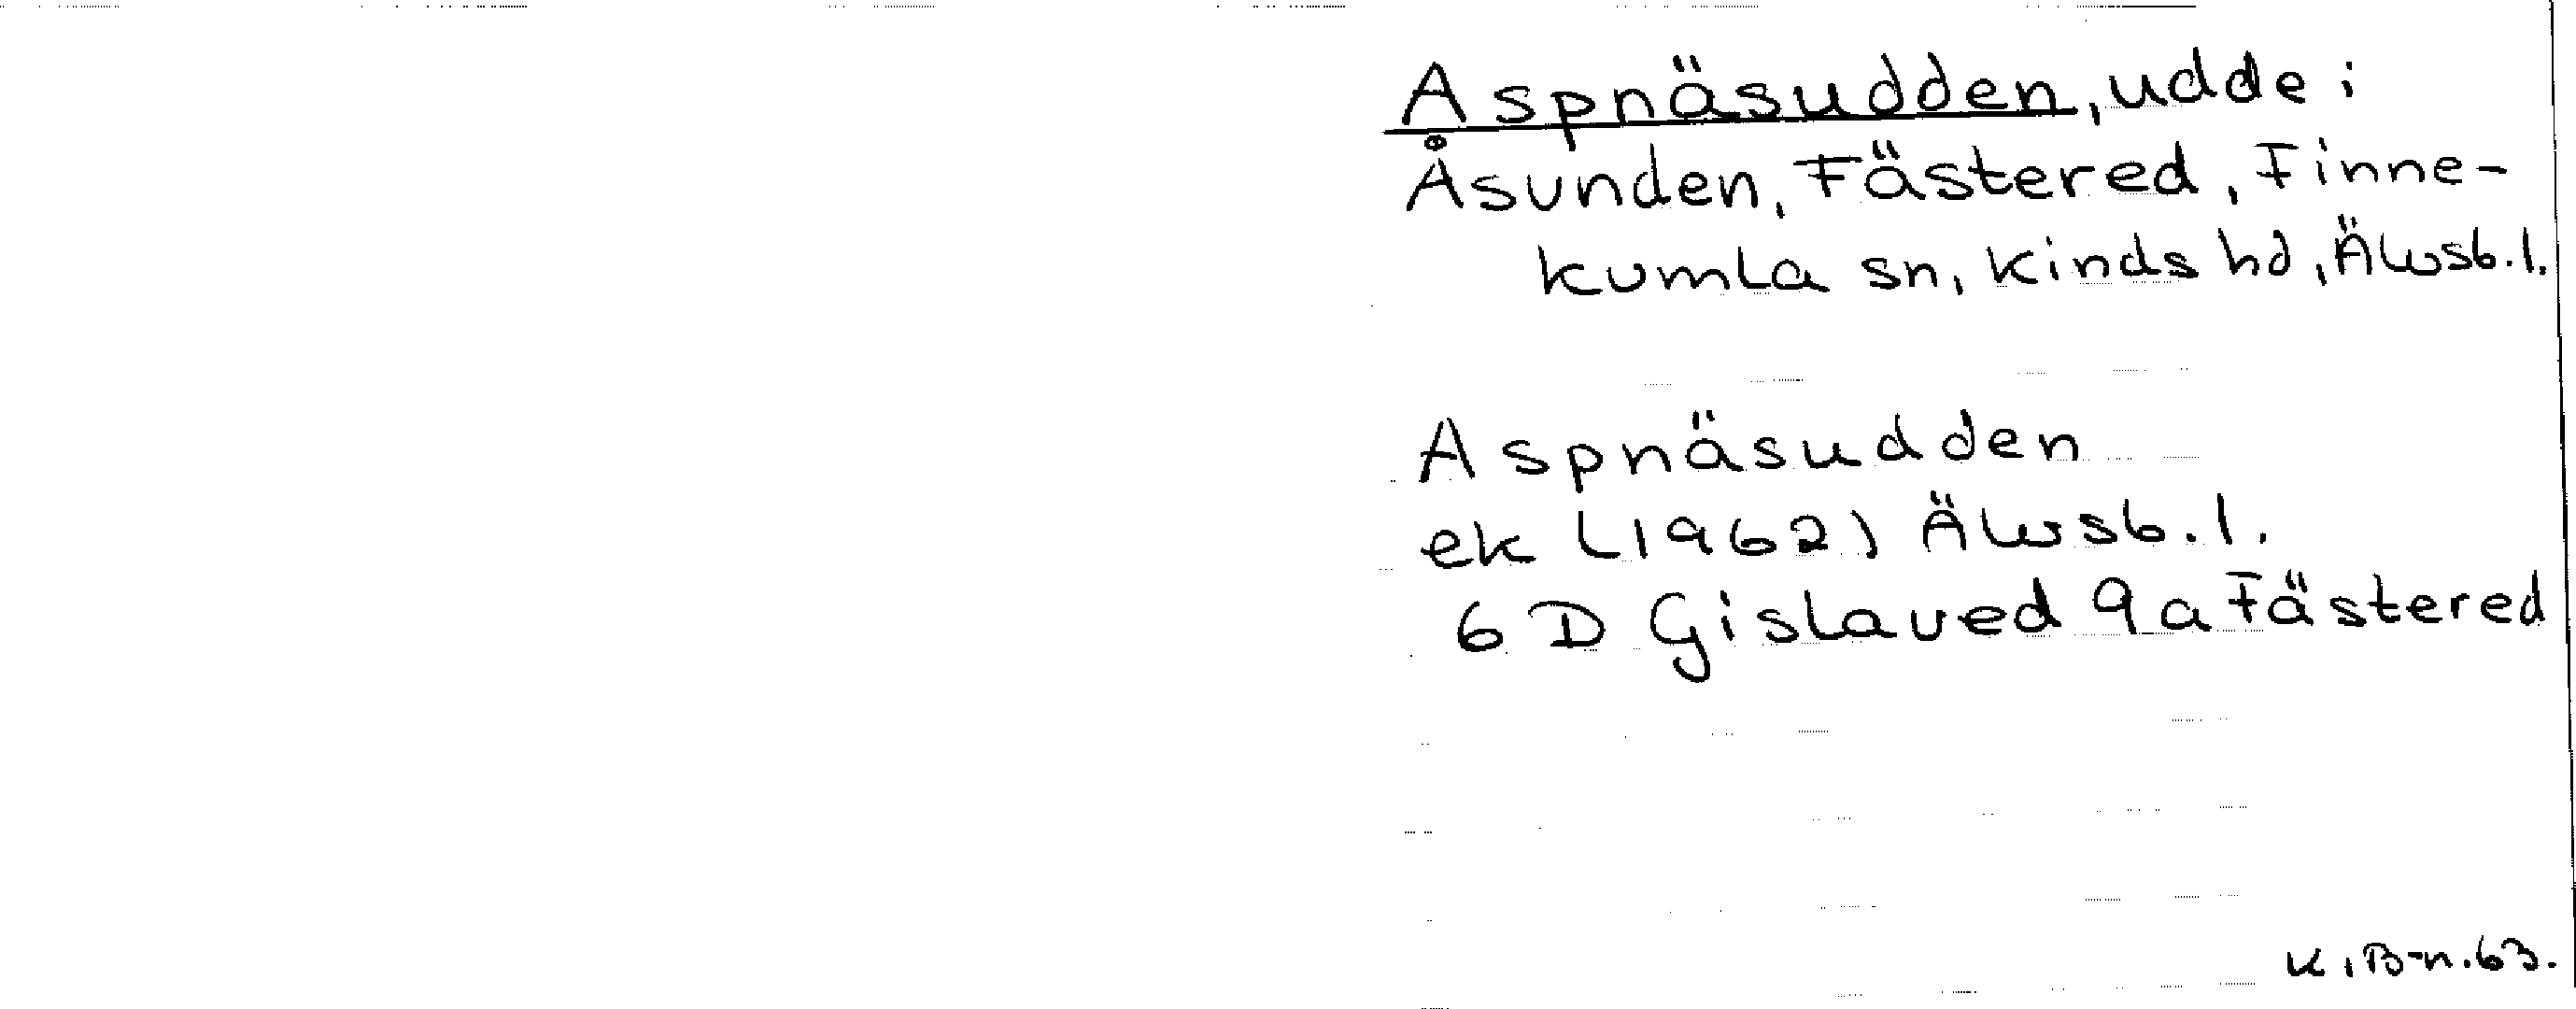 Aspnäsudden, udde i
Åsunden, Fästered, Finne-
kumla sn, Kinds hd, Älvsb. l.
Aspnäsudden
ek (1962) Älvsb. l.
6 D Gislaved 9 a Fästered
K. B-n. 63.